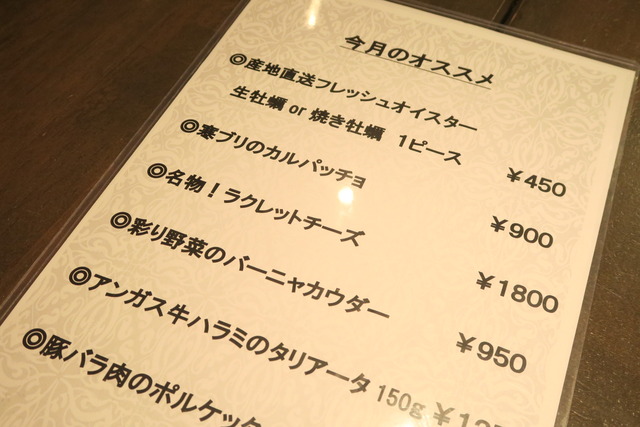 今月のオススメ
◎産地直送フレッシュオイスター
生牡蠣 or 焼き牡蠣 1ピース ¥450
◎寒ブリのカルパッチョ ¥900
◎名物！ラクレットチーズ ¥1800
◎彩り野菜のバーニャカウダー ¥950
◎アンガス牛ハラミのタリアータ 150g
◎豚バラ肉のポルケッタ